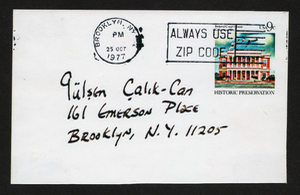 BROOKLYN, NY
PM
25 OCT
1977
ALWAYS USE
ZIP CODE
9¢
HISTORIC PRESERVATION
Gülsen Çalik-Can
161 EMERSON PLACE
BROOKLYN, N.Y. 11205